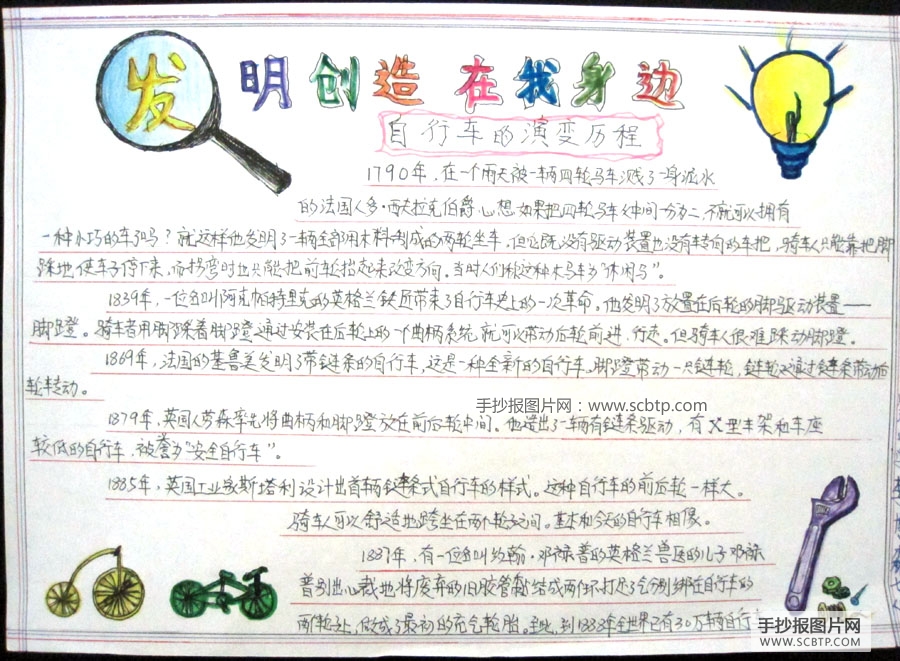 发明创造在我身边
自行车的演变历程
1790年，在一个雨天被一辆四轮马车溅了一身泥水
的法国人多·西夫拉克伯爵心想如果把四轮马车从中间一分为二，不就可以拥有
一种小巧的车了吗？就这样他发明了一辆全部用木料制成的两轮坐车，但它既没有驱动装置也没有转向的车把，骑车人只能靠把脚
踩地使车子停下来，而拐弯时也只能把前轮抬起来改变方向。当时人们称这种木马车为"休闲马"。
1839年，一位名叫阿克帕特里克的英格兰铁匠带来了自行车史上的一次革命。他发明了放置在后轮的脚驱动装置——
脚蹬。骑车者用脚踩着脚蹬通过安装在后轮上的一个曲柄系统就可以带动后轮前进、行走。但骑车人很难踩动脚蹬。
1869年，法国的基曼美发明了带链条的自行车，这是一种全新的自行车，脚蹬带动一只链轮，链轮又通过链条带动后
轮转动。
手抄报图片网：www.scbtp.com
1879年，英国人劳森率先将曲柄和脚蹬放在前后轮中间。他造出了一辆有链条驱动，有X型车架和车座
较低的自行车，被誉为"安全自行车"。
1885年，英国工业家斯塔利设计出首辆链条式自行车的样式。这种自行车的前后轮一样大。
骑车人可以舒适地跨坐在两个轮之间。基本和今天的自行车相像。
1887年，有一位名叫约翰·邓禄普的英格兰兽医的儿子邓禄
普别出心裁地将废弃的旧胶管黏结成两个环打足了气分别绑在自行车的
两个轮上，做成了最初的充气轮胎。至此，到1888年全世界已有30万辆自行
手抄报图片网
WWW.SCBTP.COM